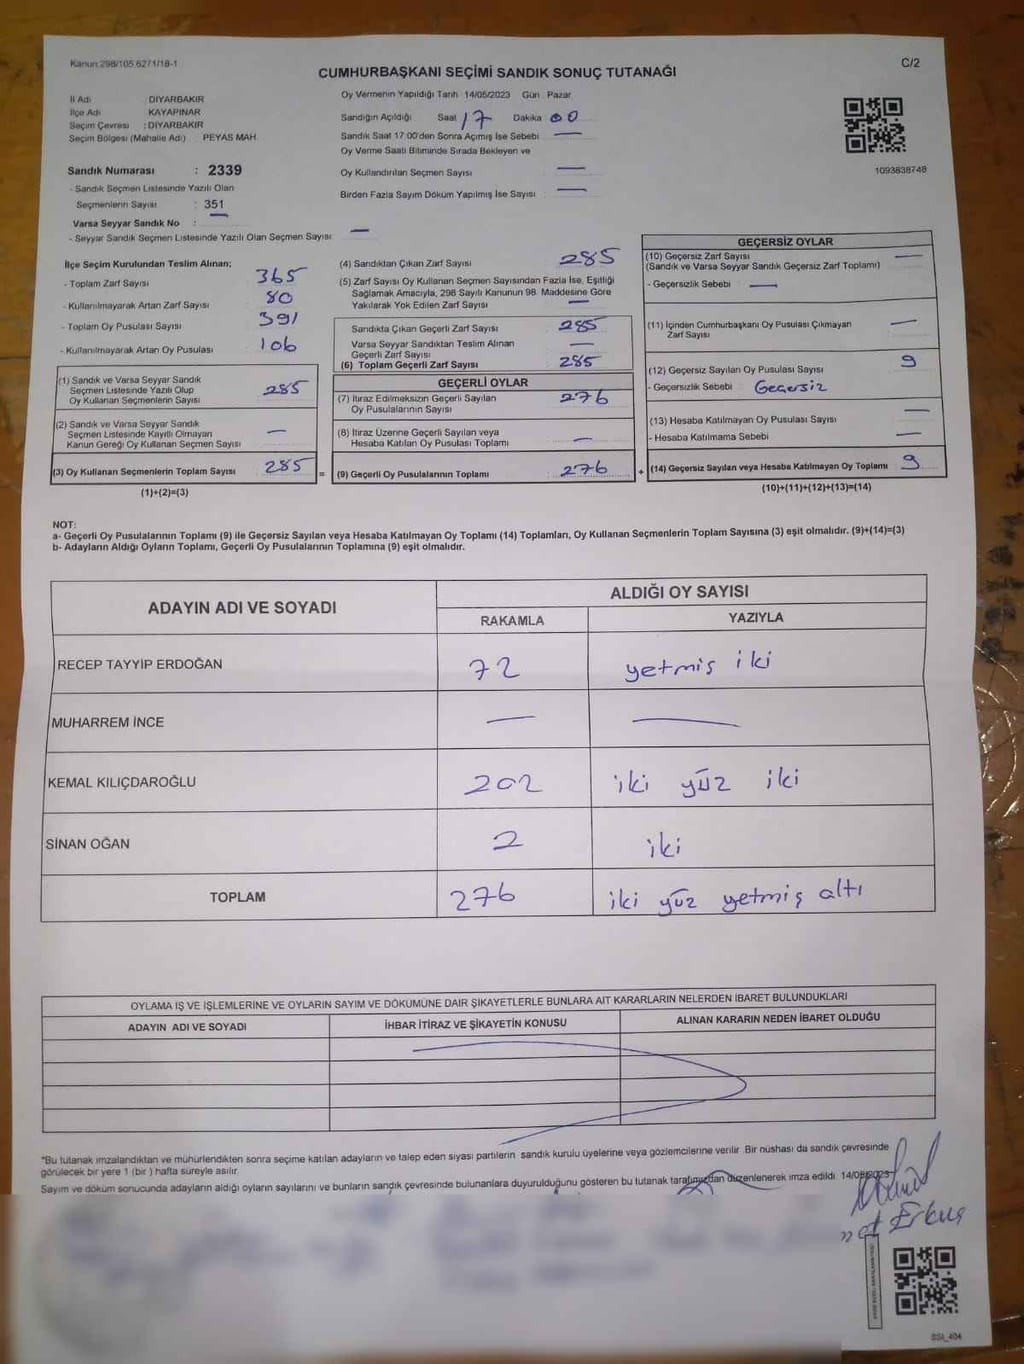 Kanun:298/105,6271/18-1
C/2
CUMHURBAŞKANI SEÇİMİ SANDIK SONUÇ TUTANAĞI
İl Adı : DİYARBAKIR
İlçe Adı : KAYAPINAR
Seçim Çevresi : DİYARBAKIR
Seçim Bölgesi (Mahalle Adı) : PEYAS MAH.
Sandık Numarası : 2339
- Sandık Seçmen Listesinde Yazılı Olan
Seçmenlerin Sayısı : 351
Varsa Seyyar Sandık No : —
- Seyyar Sandık Seçmen Listesinde Yazılı Olan Seçmen Sayısı: —
Oy Vermenin Yapıldığı Tarih 14/05/2023 Gün : Pazar
Sandığın Açıldığı Saat 17 Dakika 00
Sandık Saat 17:00'den Sonra Açımış İse Sebebi —
Oy Verme Saati Bitiminde Sırada Bekleyen ve
Oy Kullandırılan Seçmen Sayısı —
Birden Fazla Sayım Döküm Yapılmış İse Sayısı —
1093838748
İlçe Seçim Kurulundan Teslim Alınan;
- Toplam Zarf Sayısı 365
- Kullanılmayarak Artan Zarf Sayısı 80
- Toplam Oy Pusulası Sayısı 391
- Kullanılmayarak Artan Oy Pusulası 106
(1) Sandık ve Varsa Seyyar Sandık
Seçmen Listesinde Yazılı Olup
Oy Kullanan Seçmenlerin Sayısı 285
(2) Sandık ve Varsa Seyyar Sandık
Seçmen Listesinde Kayıtlı Olmayan
Kanun Gereği Oy Kullanan Seçmen Sayısı —
(3) Oy Kullanan Seçmenlerin Toplam Sayısı 285 =
(1)+(2)=(3)
(4) Sandıktan Çıkan Zarf Sayısı 285
(5) Zarf Sayısı Oy Kullanan Seçmen Sayısından Fazla İse, Eşitliği
Sağlamak Amacıyla, 298 Sayılı Kanunun 98. Maddesine Göre
Yakılarak Yok Edilen Zarf Sayısı —
Sandıkta Çıkan Geçerli Zarf Sayısı 285
Varsa Seyyar Sandıktan Teslim Alınan
Geçerli Zarf Sayısı —
(6) Toplam Geçerli Zarf Sayısı 285
GEÇERLİ OYLAR
(7) İtiraz Edilmeksizin Geçerli Sayılan
Oy Pusulalarının Sayısı 276
(8) İtiraz Üzerine Geçerli Sayılan veya
Hesaba Katılan Oy Pusulası Toplamı —
(9) Geçerli Oy Pusulalarının Toplamı 276 +
GEÇERSİZ OYLAR
(10) Geçersiz Zarf Sayısı —
(Sandık ve Varsa Seyyar Sandık Geçersiz Zarf Toplamı)
- Geçersizlik Sebebi : —
(11) İçinden Cumhurbaşkanı Oy Pusulası Çıkmayan
Zarf Sayısı —
(12) Geçersiz Sayılan Oy Pusulası Sayısı 9
- Geçersizlik Sebebi : Geçersiz
(13) Hesaba Katılmayan Oy Pusulası Sayısı —
- Hesaba Katılmama Sebebi —
(14) Geçersiz Sayılan veya Hesaba Katılmayan Oy Toplamı 9
(10)+(11)+(12)+(13)=(14)
NOT:
a- Geçerli Oy Pusulalarının Toplamı (9) ile Geçersiz Sayılan veya Hesaba Katılmayan Oy Toplamı (14) Toplamları, Oy Kullanan Seçmenlerin Toplam Sayısına (3) eşit olmalıdır. (9)+(14)=(3)
b- Adayların Aldığı Oyların Toplamı, Geçerli Oy Pusulalarının Toplamına (9) eşit olmalıdır.
ADAYIN ADI VE SOYADI ALDIĞI OY SAYISI
RAKAMLA YAZIYLA
RECEP TAYYİP ERDOĞAN 72 yetmiş iki
MUHARREM İNCE — —
KEMAL KILIÇDAROĞLU 202 iki yüz iki
SİNAN OĞAN 2 iki
TOPLAM 276 iki yüz yetmiş altı
OYLAMA İŞ VE İŞLEMLERİNE VE OYLARIN SAYIM VE DÖKÜMÜNE DAİR ŞİKAYETLERLE BUNLARA AİT KARARLARIN NELERDEN İBARET BULUNDUKLARI
ADAYIN ADI VE SOYADI İHBAR İTİRAZ VE ŞİKAYETİN KONUSU ALINAN KARARIN NEDEN İBARET OLDUĞU
*Bu tutanak imzalandıktan ve mühürlendikten sonra seçime katılan adayların ve talep eden siyasi partilerin sandık kurulu üyelerine veya gözlemcilerine verilir. Bir nüshası da sandık çevresinde
görülecek bir yere 1 (bir ) hafta süreyle asılır.
Sayım ve döküm sonucunda adayların aldığı oyların sayılarını ve bunların sandık çevresinde bulunanlara duyurulduğunu gösteren bu tutanak tarafımızdan düzenlenerek imza edildi. 14/05/2023
Erkuş
SSI_404